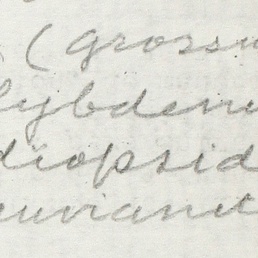 (grossu
lybdenu
diopsid
euvianit